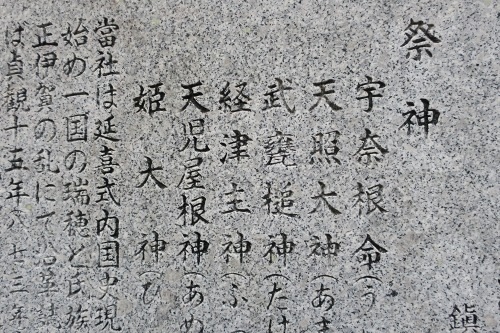 鎮
祭神
宇奈根命(う
天照大神(あま
武甕槌神(たけ
経津主神(ふ
天児屋根神(あめ
姫大神(ひ
當社は延喜式内国史現
始め一国の瑞穂と氏族
正伊賀の乱にて
ば貞観十五年